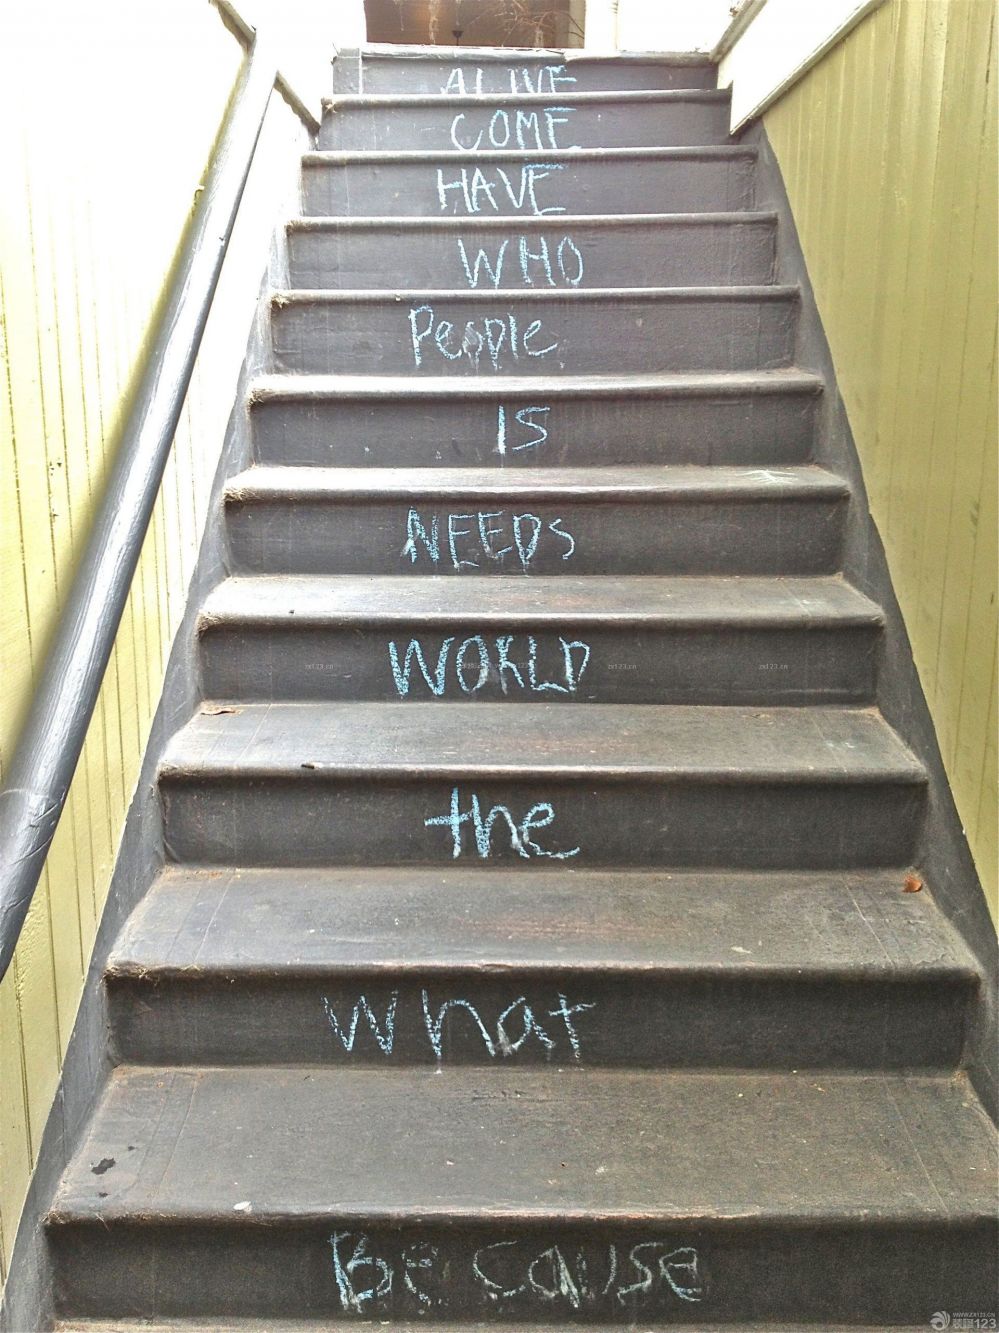 ALIVE
COME
HAVE
WHO
People
IS
NEEDS
WORLD
the
what
Because
zx123.cn
zx123.cn
zx123.cn
WWW.ZX123.CN
装修123